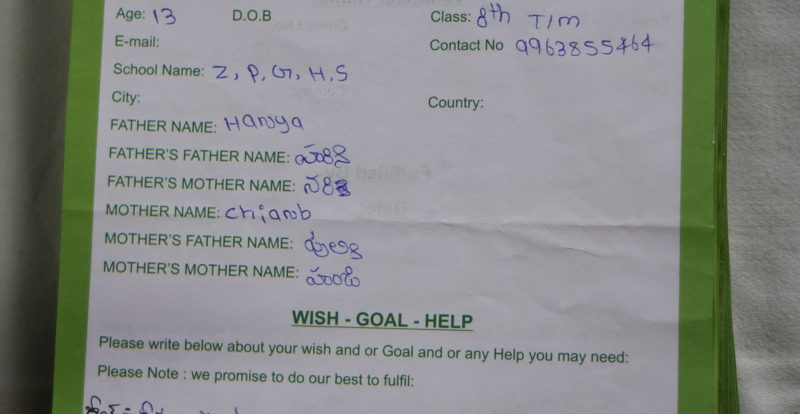 Age: 13 D.O.B Class: 8th T/m
E-mail: Contact No 9963855464
School Name: Z, P, G, H, S
City: Country:
FATHER NAME: Haruya
FATHER'S FATHER NAME:
FATHER'S MOTHER NAME:
MOTHER NAME:
MOTHER'S FATHER NAME:
MOTHER'S MOTHER NAME:
WISH - GOAL - HELP
Please write below about your wish and or Goal and or any Help you may need:
Please Note : we promise to do our best to fulfil: